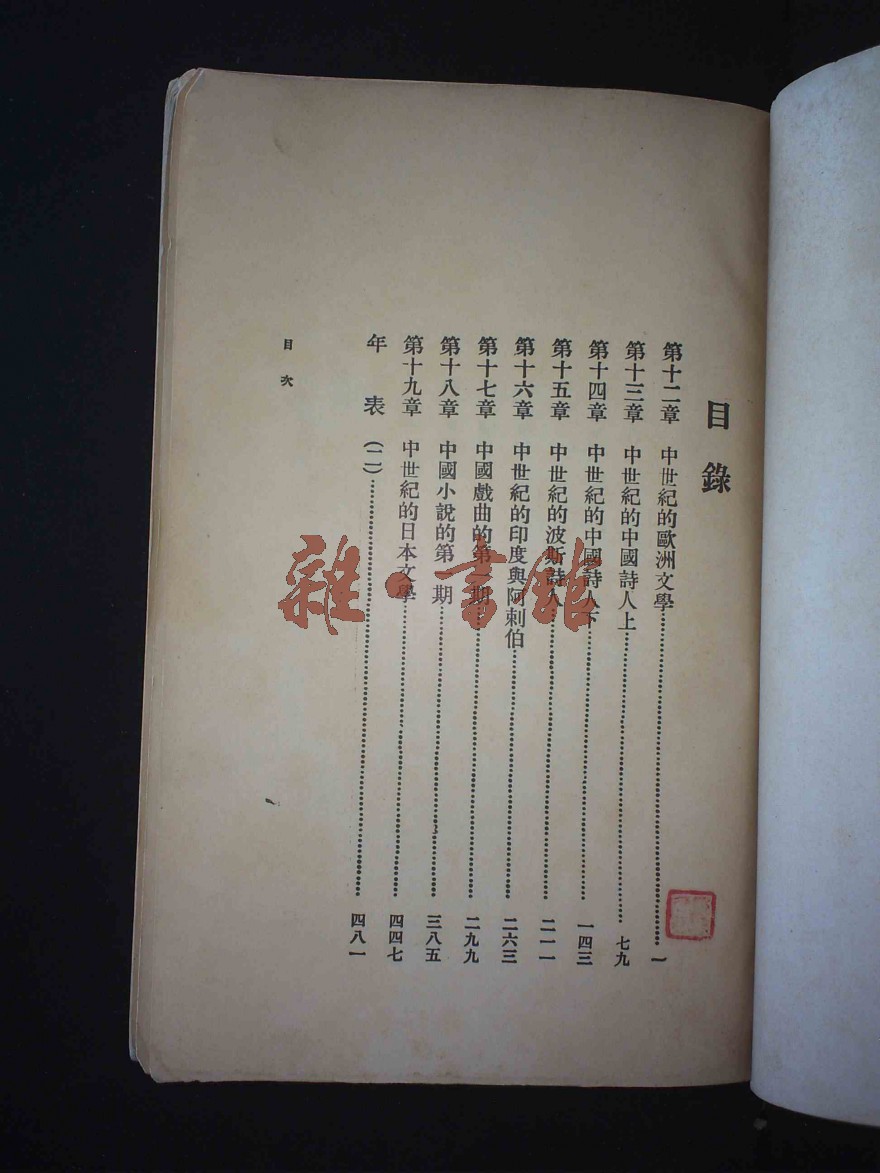 目錄
第十二章 中世紀的歐洲文學……一
第十三章 中世紀的中國詩人上……七九
第十四章 中世紀的中國詩人下……一四三
第十五章 中世紀的波斯詩人……二一一
第十六章 中世紀的印度與阿剌伯……二六三
第十七章 中國戲曲的第一期……二九九
第十八章 中國小說的第一期……三八五
第十九章 中世紀的日本文學……四四七
年表(二)……四八一
目次
雜·書館